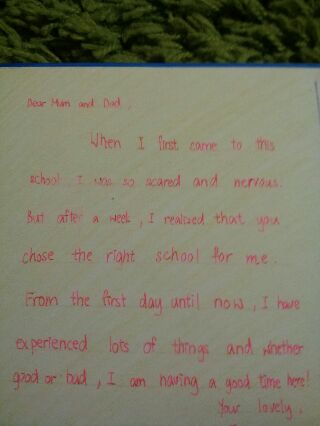 Dear Mum and Dad,
When I first came to this
school, I was so scared and nervous.
But after a week, I realized that you
chose the right school for me.
From the first day until now, I have
experienced lots of things and whether
good or bad, I am having a good time here!
Your lovely,